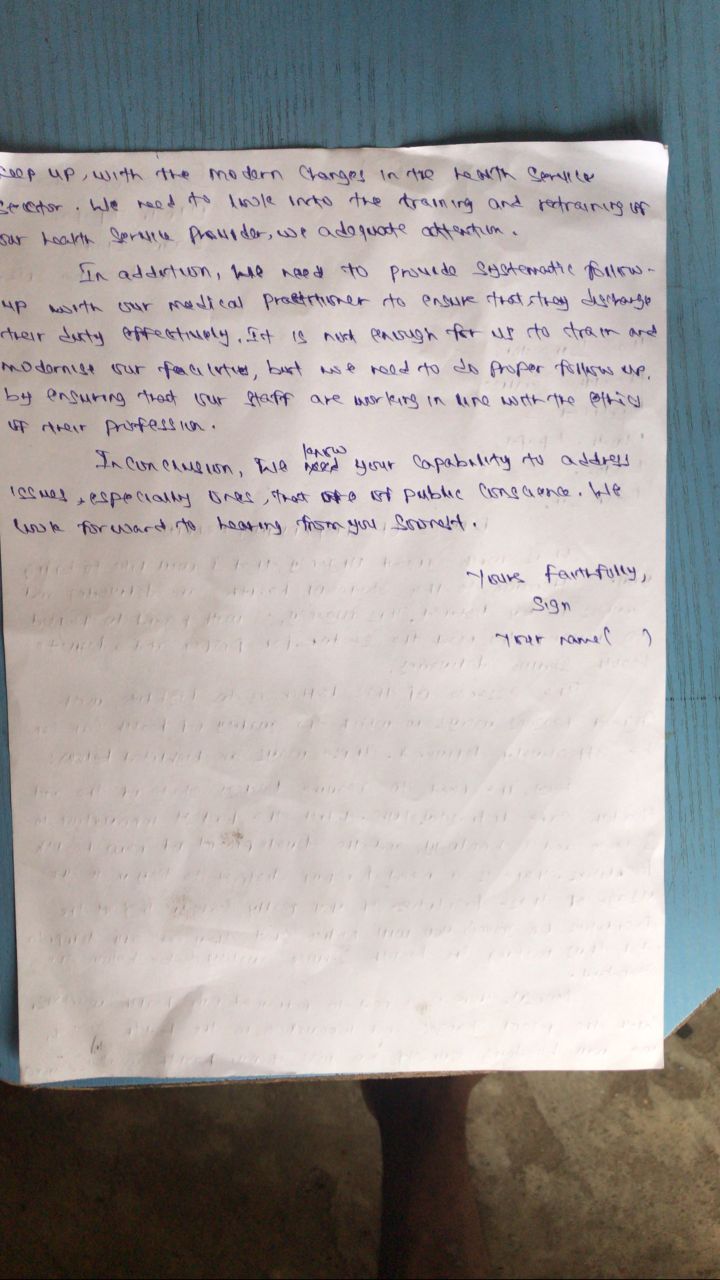 keep up, with the modern changes in the health service
sector. We need to look into the training and retraining of
our health service provider, we adequate attention.
In addition, we need to provide systematic follow-
up with our medical practitioner to ensure that they discharge
their duty effectively. It is not enough for us to train and
modernise our facilities, but we need to do proper follow up,
by ensuring that our staff are working in line with the ethics
of their profession.
In conclusion, we know your capability to address
issues, especially ones, that are of public conscience. We
look forward to hearing from you soonest.
Yours faithfully,
Sign
Your name( )